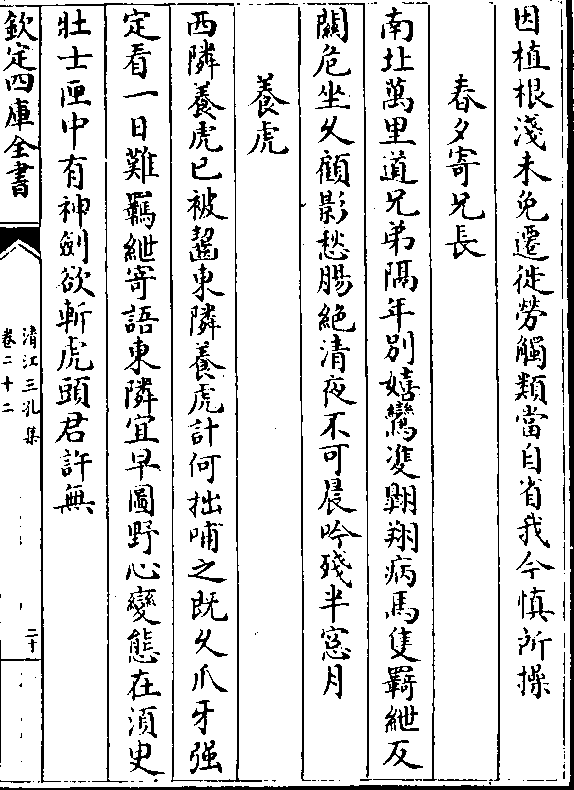 因植根淺未免遷徙勞觸類當自省我今慎所操
春夕寄兄長
南北萬里道兄弟隔年別嬉鸞雙翺翔病馬隻羇紲反
關危坐乆顧影愁腸絶清夜不可晨吟殘半窓月
養虎
西隣養虎已被齧東隣養虎計何拙哺之既乆爪牙强
定看一日難羈紲寄語東隣宜早圖野心變態在須臾
壯士匣中有神劍欲斬虎頭君許無
欽定四庫全書
清江三孔集
卷二十二
二十